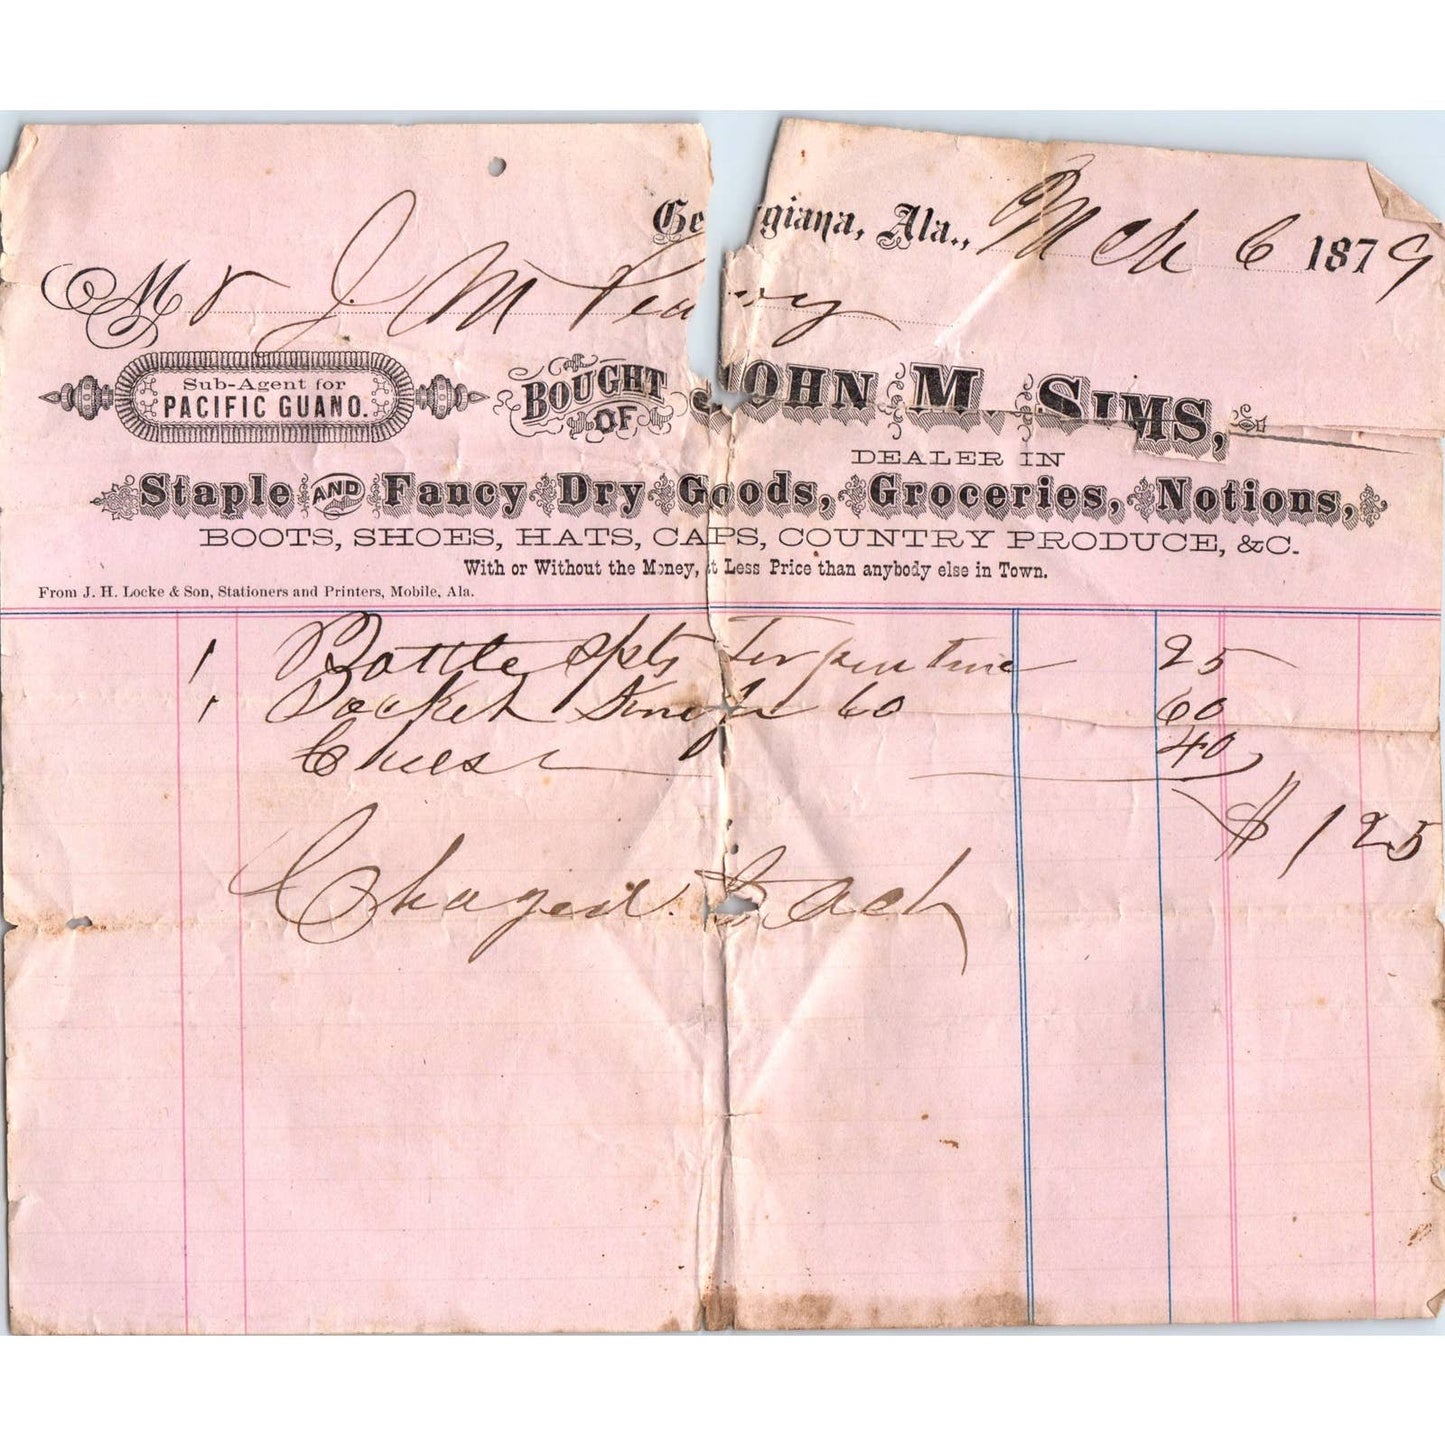 Ge giana, Ala., Mch 6 1879
Mr J. M
Sub-Agent for
PACIFIC GUANO.
BOUGHT OF JOHN M. SIMS,
DEALER IN
Staple AND Fancy Dry Goods, Groceries, Notions,
BOOTS, SHOES, HATS, CAPS, COUNTRY PRODUCE, &C.
With or Without the Money, at Less Price than anybody else in Town.
From J. H. Locke & Son, Stationers and Printers, Mobile, Ala.
1 Bottle Spts Turpentine 25
1 Pocket Knife 60 60
Cheese 40
$ 1 25
Charged